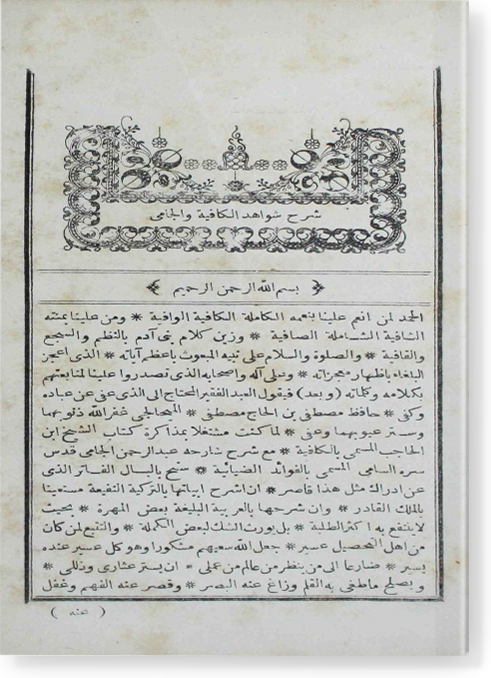 شرح شواهد الكافية والجامى
بسم الله الرحمن الرحيم
الحمد لمن انعم علينا بنعمه الكاملة الكافية الوافية * ومن علينا بمننه
الشافية الشاملة الصافية * وزين كلام بنى آدم بالنظم والسجع
والقافية * والصلوة والسلام على نبيه المبعوث باعظم آياته * الذى اعجز
البلغاء باظهار معجزاته * وعلى آله واصحابه الذى تصدروا علينا لمتابعتهم
بكلامه وكلماته (وبعد) فيقول العبد الفقير المحتاج الى الذى غنى عن عباده
وكفى * حافظ مصطفى بن الحاج مصطفى * المحالجى غفر الله ذنوبهما
وستر عيوبهما وعفى * لما كنت مشتغلا بمذاكرة كتاب الشيخ ابن
الحاجب المسمى بالكافية * مع شرح شارحه عبد الرحمن الجامى قدس
سره السامى المسمى بالفوائد الضيائية * سنح بالبال الفاتر الذى
عن ادراك مثل هذا قاصر * ان اشرح ابياتها بالتركية النفيعة مستعينا
بالملك القادر * وان شرحها بالعربية البليغة بعض المهرة * بحيث
لا ينتفع به اكثر الطلبة * بل يورث الشك لبعض الكملة * والتتبع لمن كان
من اهل التحصيل عسير * جعل الله سعيهم مشكورا وهو كل عسير عنده
يسير * ضارعا الى من ينظر من عالم من عملى * ان يستر عثارى وذللى *
ويصلح ماطغى به القلم وزاغ عنه البصر * وقصر عنه الفهم وغفل
( عنه )